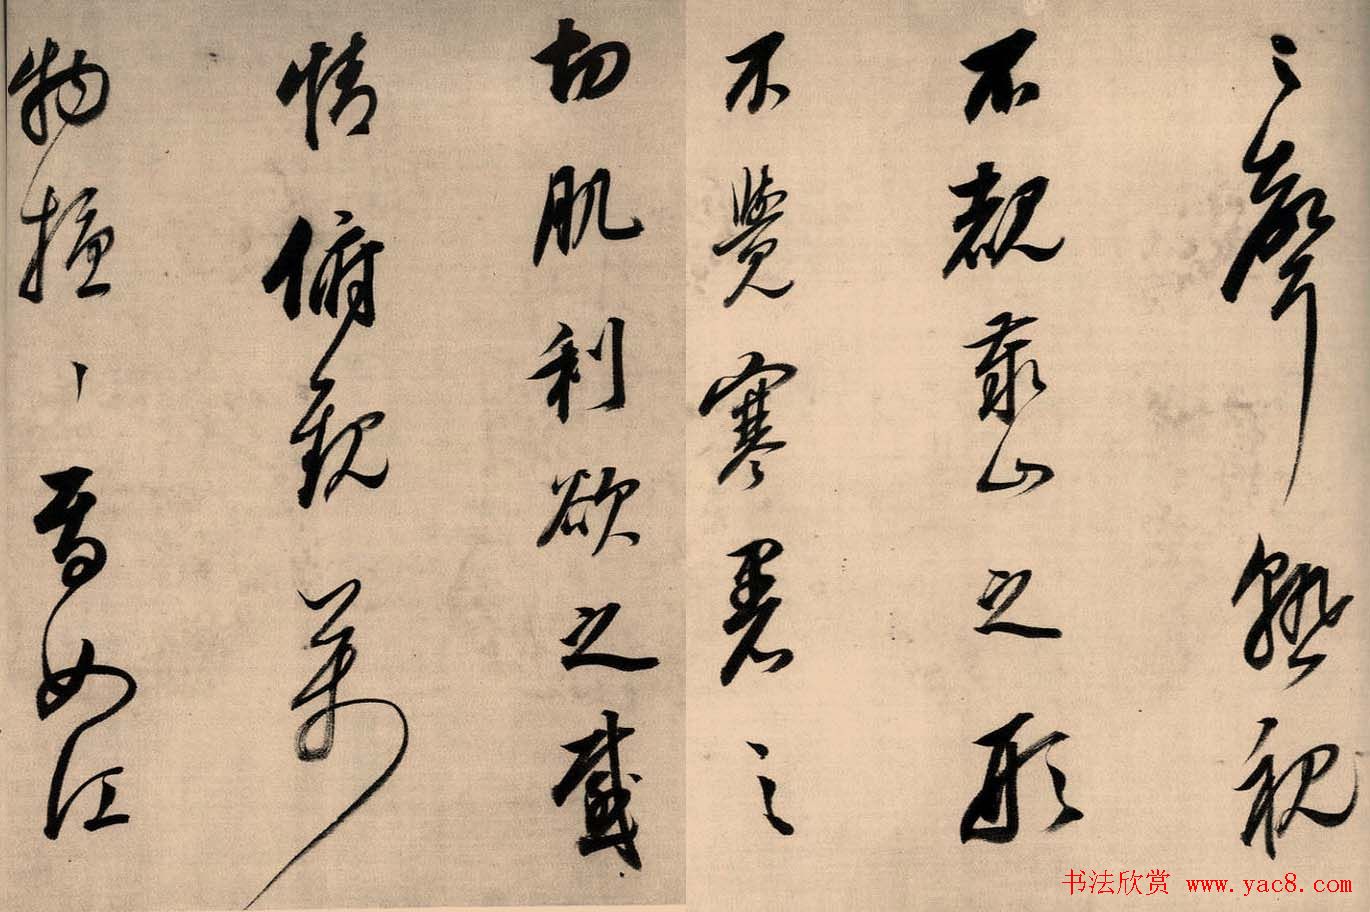 之聲熟視
不覩泰山之形
不覺寒暑之
切肌利欲之感
情俯觀萬
物擾丶焉如江
书法欣赏 www.yac8.com